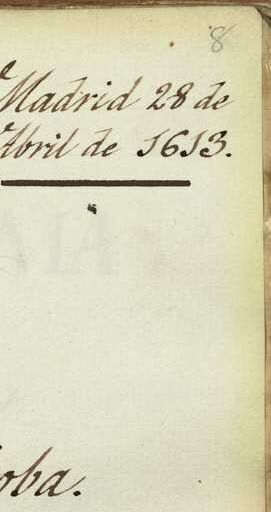 8
Madrid 28 de
Abril de 1613.
oba.